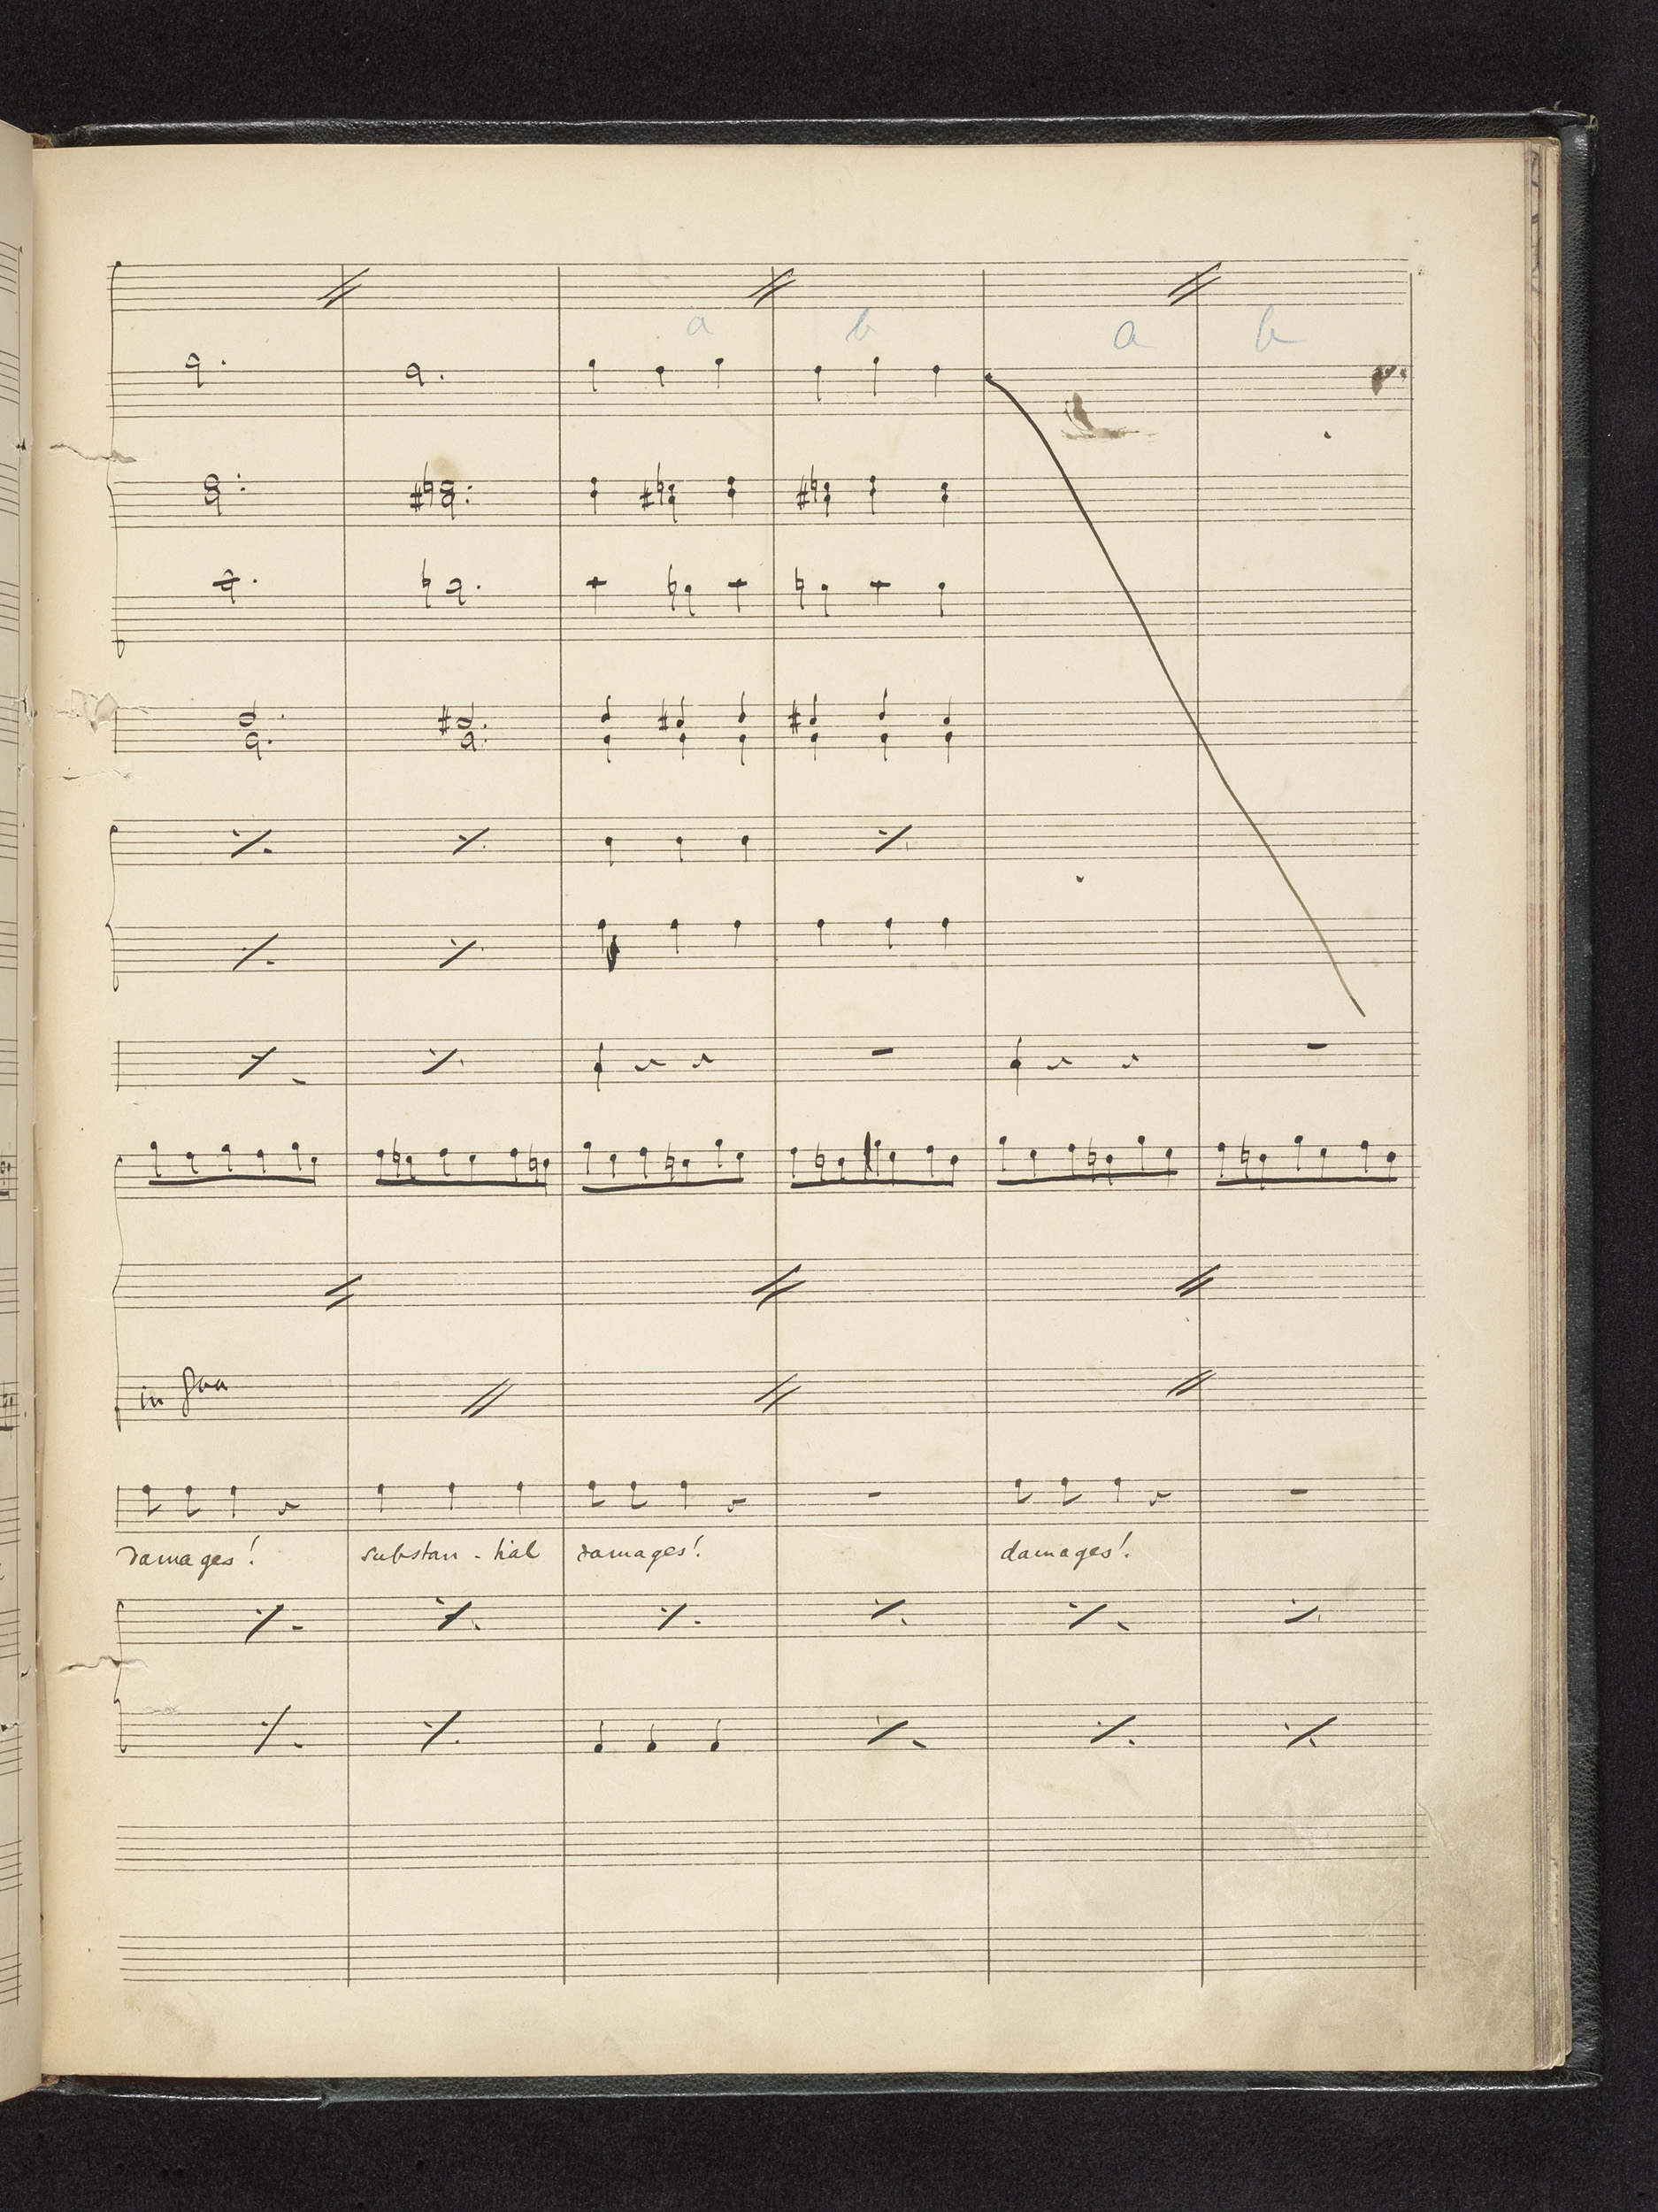 a b a b
in 8va
damages! substan - tial damages! damages!